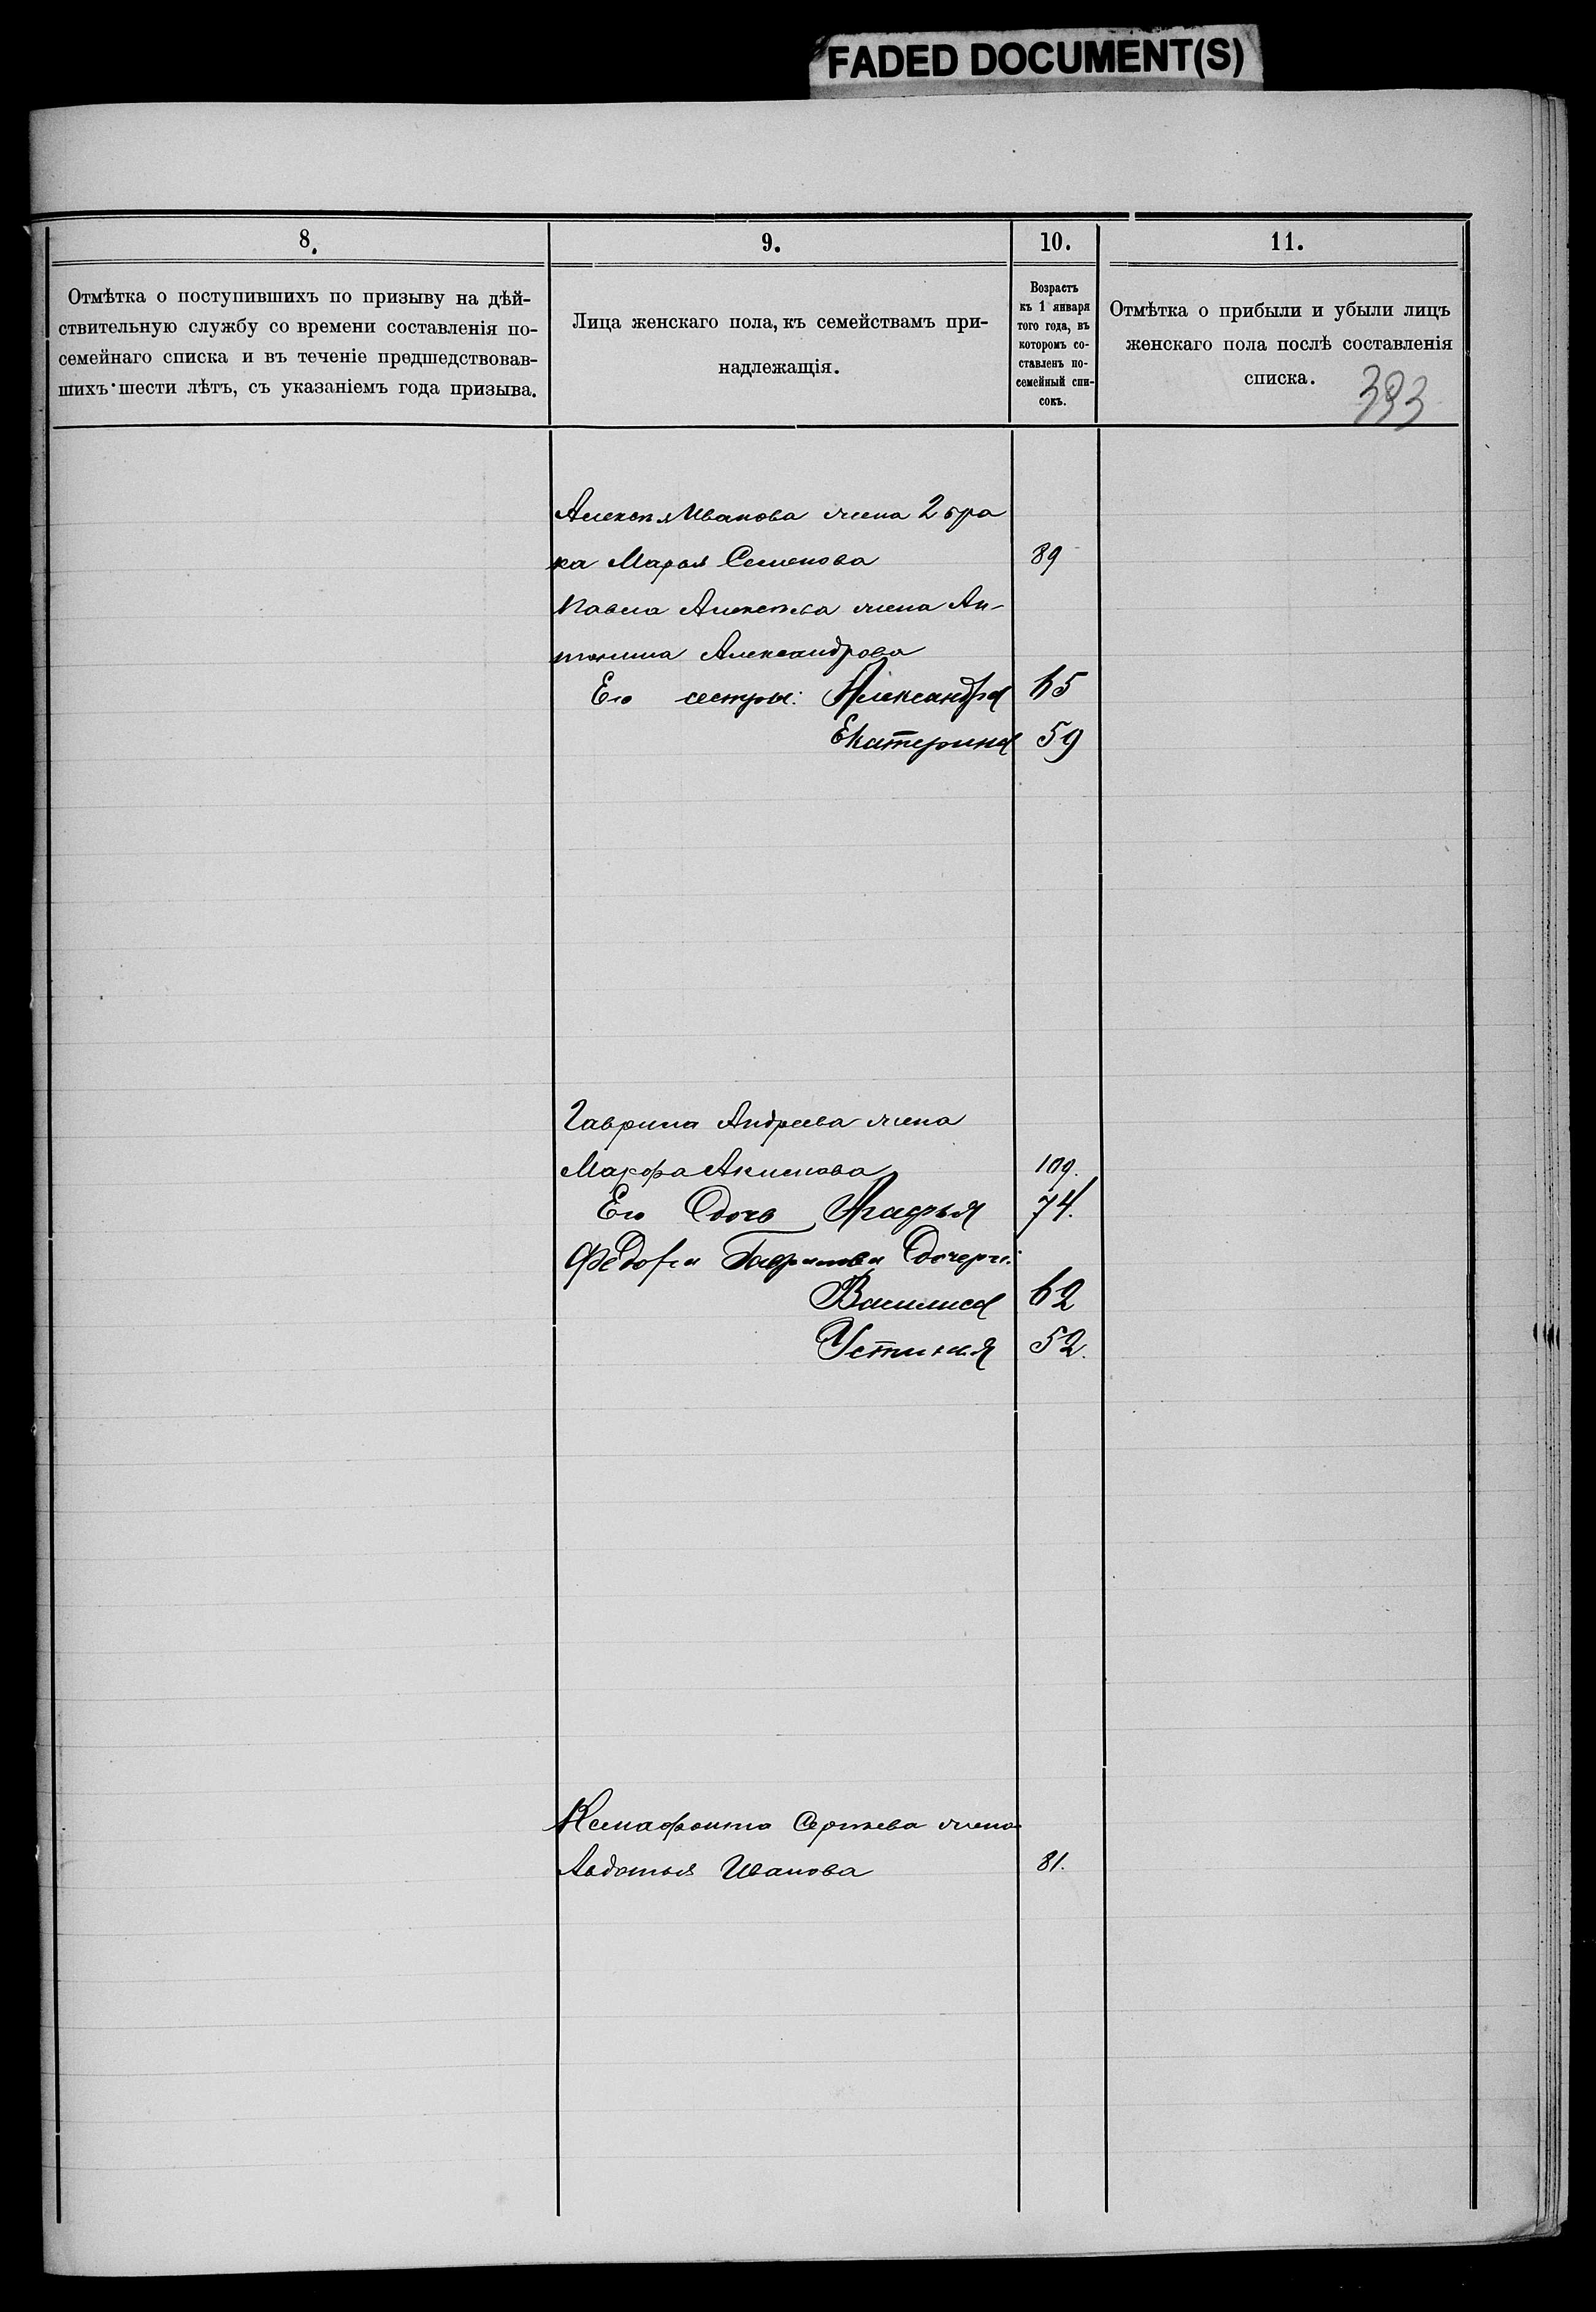 FADED DOCUMENT(S)
8.
Отмѣтка о поступившихъ по призыву на дѣй-
ствительную службу со времени составленія по-
семейнаго списка и въ теченіе предшедствовав-
шихъ шести лѣтъ, съ указаніемъ года призыва.
9.
Лица женскаго пола, къ семействамъ при-
надлежащія.
10.
Возрастъ
къ 1 января
того года, въ
которомъ со-
ставленъ по-
семейный спи-
сокъ.
11.
Отмѣтка о прибыли и убыли лицъ
женскаго пола послѣ составленія
списка.
393
Алексѣя Иванова жена 2 бра
ка Марья Семенова 89
Павла Алексѣева жена Ан-
тонина Александрова
Его сестры: Александра 65
Екатерина 59
Гаврила Андреева жена
Акимова 109.
Его дочь 74.
Гаврилова дочери:
Василиса 62
Устинья 52.
Ксенофонта Сергѣева жена
Авдотья Иванова 81.